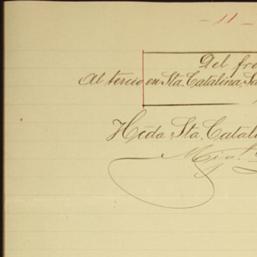 - 11 -
Del fre
Al tercio en Sta. Catalina, Sa
Hcda Sta. Catali